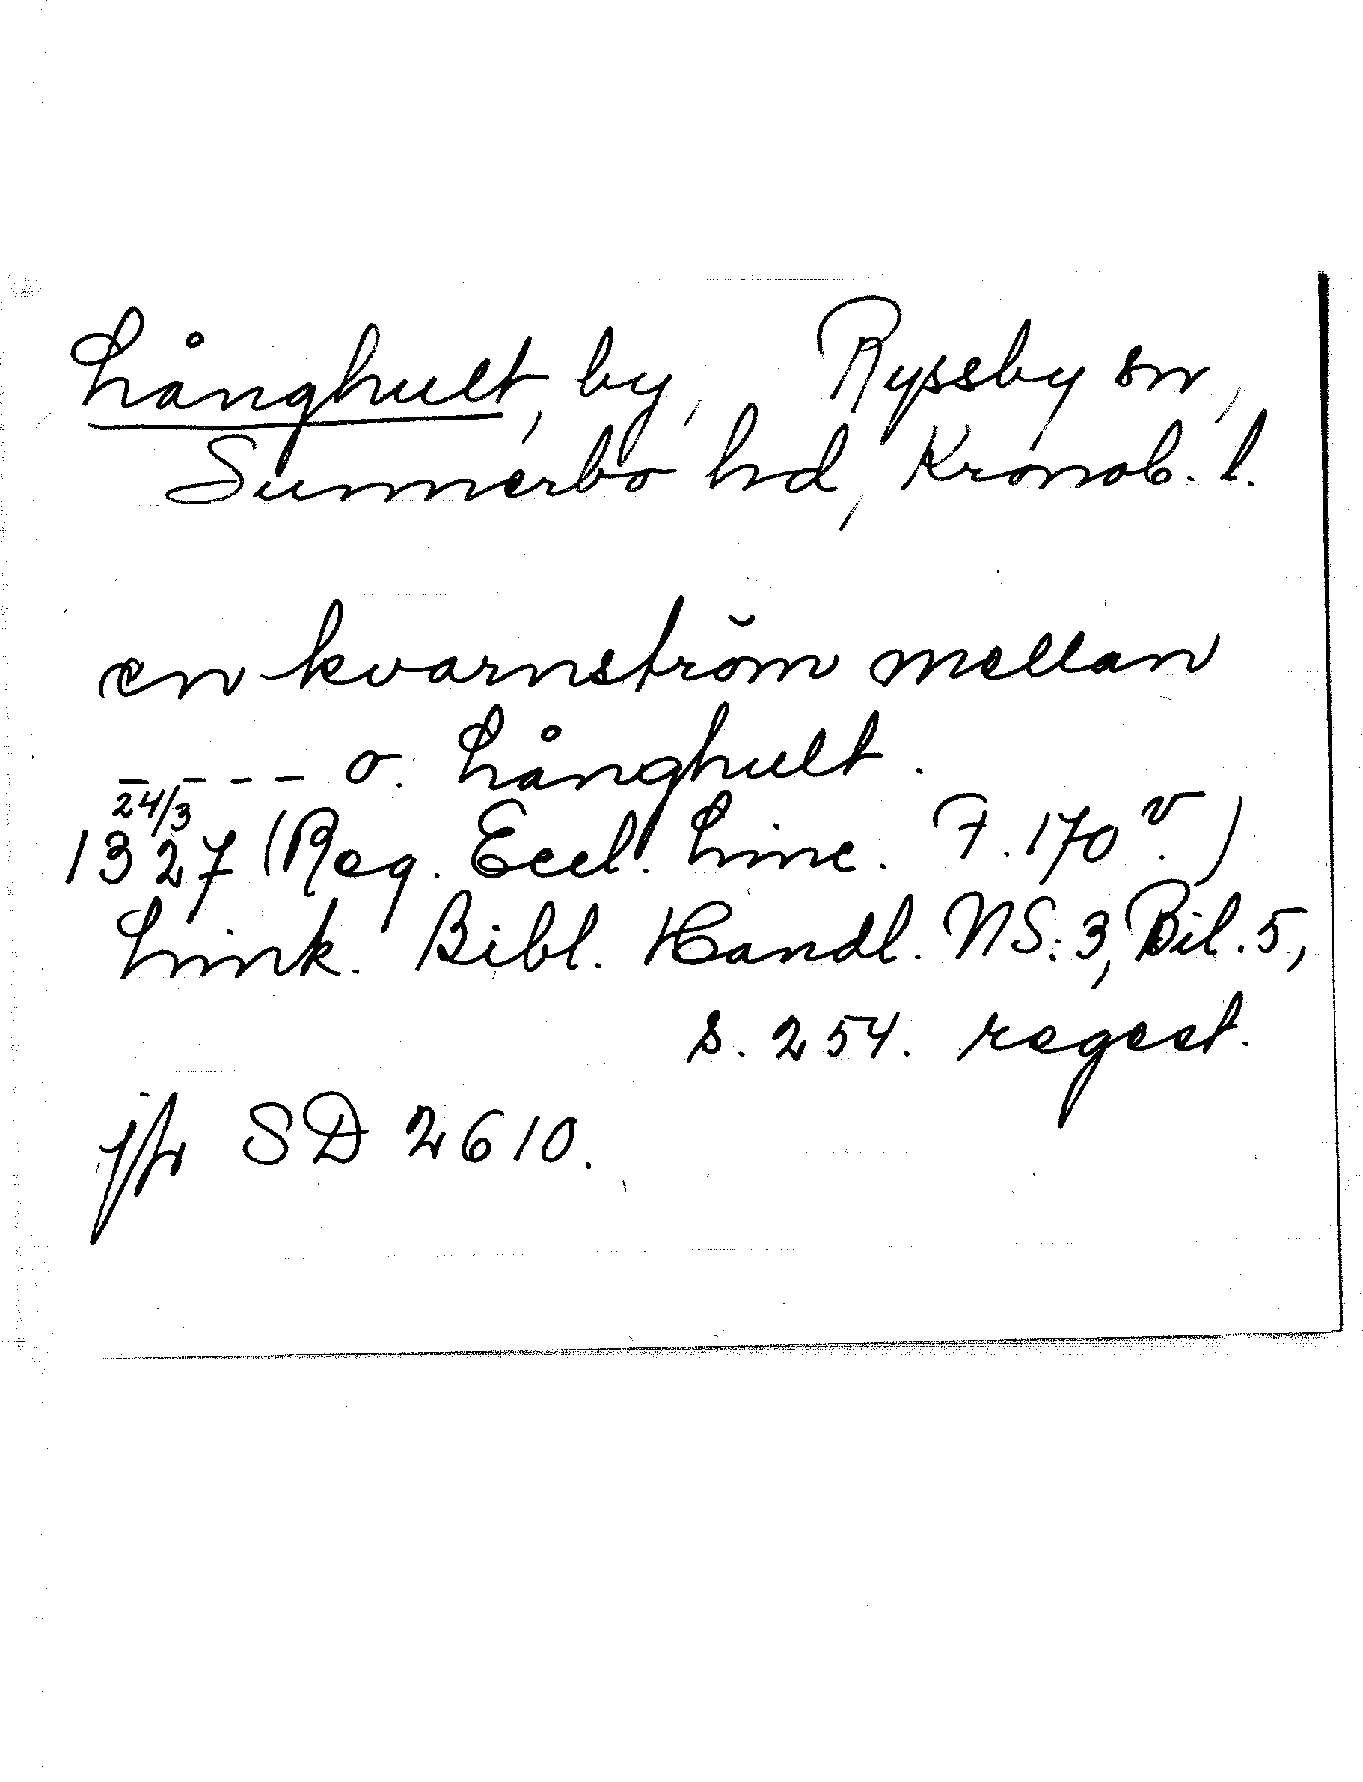 Långhult, by, Ryssby sn,
Sunnerbo hd, Kronob. l.
en kvarnström mellan
- - - - o. Långhult.
24/3
1327 (Reg. Eccl. Linc. F. 170 v.)
Link. Bibl. Handl. NS: 3, Bil. 5,
s. 254. regest.
jfr SD 2610.